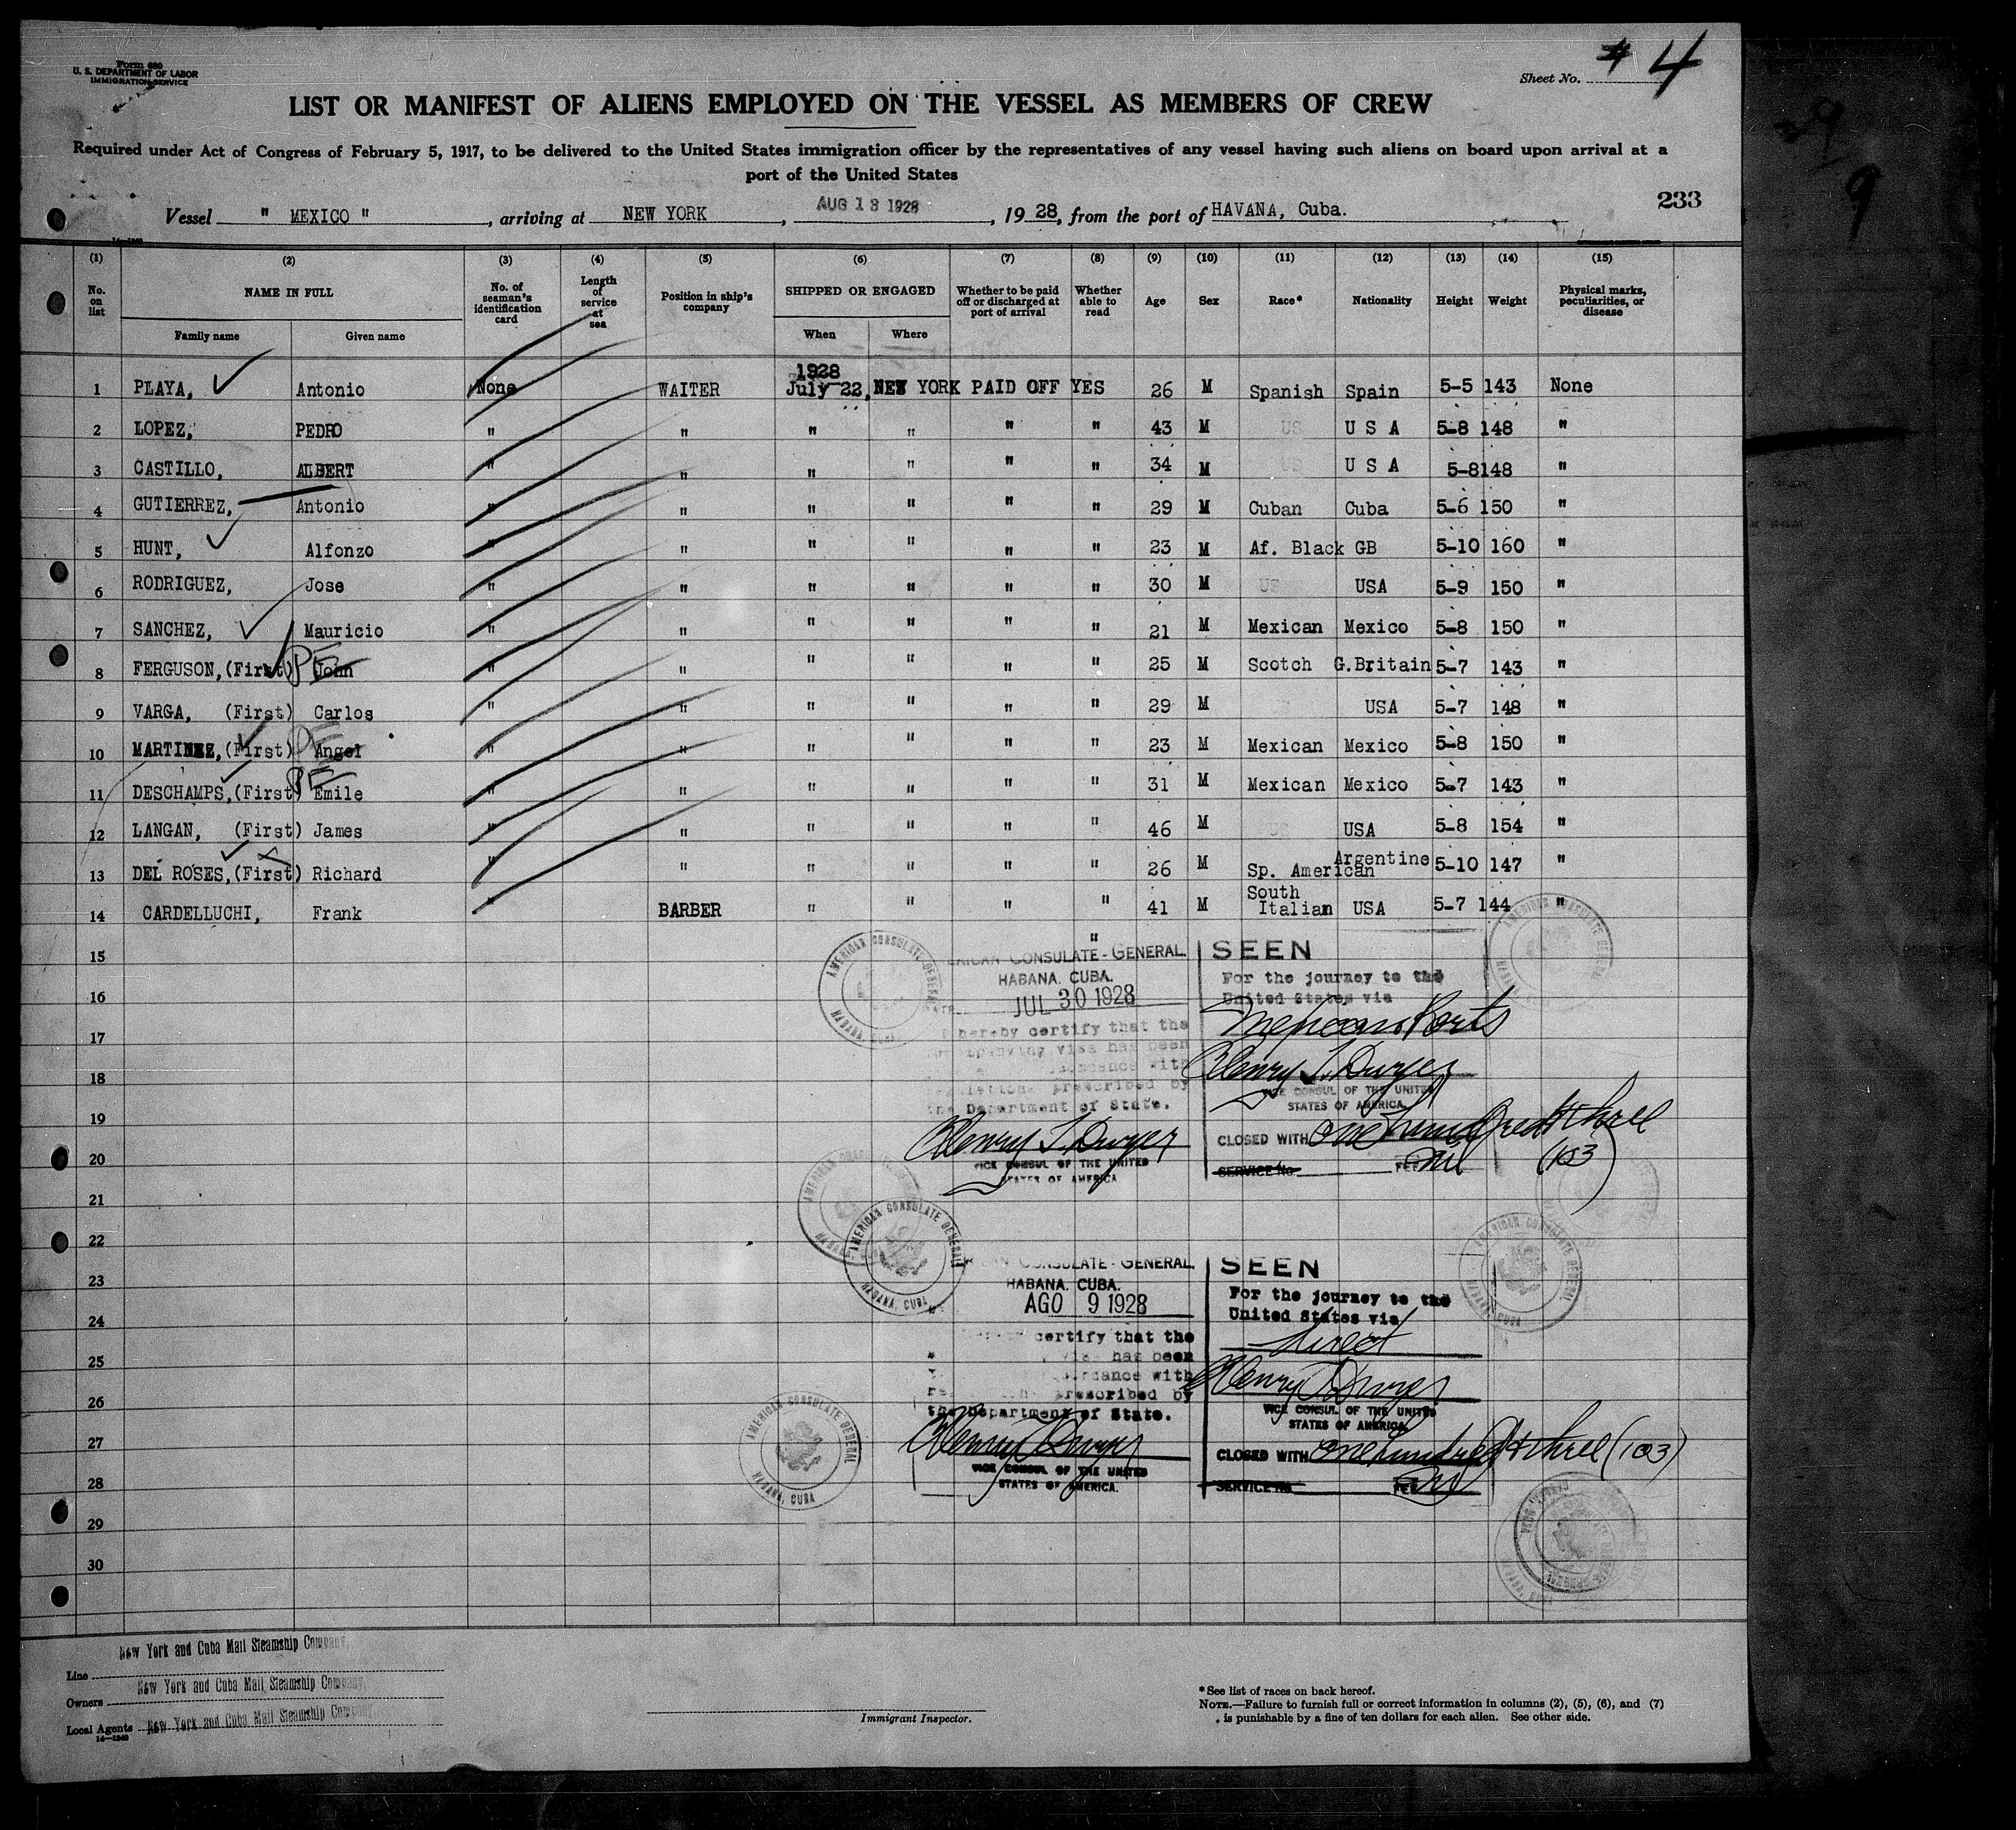 Form 680
U. S. DEPARTMENT OF LABOR
IMMIGRATION SERVICE
Sheet No. # 4
LIST OR MANIFEST OF ALIENS EMPLOYED ON THE VESSEL AS MEMBERS OF CREW
Required under Act of Congress of February 5, 1917, to be delivered to the United States immigration officer by the representatives of any vessel having such aliens on board upon arrival at a
port of the United States
233
Vessel " MEXICO ", arriving at NEW YORK, AUG 13 1928, 1928, from the port of HAVANA, Cuba.
(1) (2) (3) (4) (5) (6) (7) (8) (9) (10) (11) (12) (13) (14) (15)
No. on list
NAME IN FULL
Family name Given name
No. of seaman's identification card
Length of service at sea
Position in ship's company
SHIPPED OR ENGAGED
When Where
Whether to be paid off or discharged at port of arrival
Whether able to read
Age Sex Race* Nationality Height Weight
Physical marks, peculiarities, or disease
1928
1 PLAYA, Antonio None WAITER July 22, NEW YORK PAID OFF YES 26 M Spanish Spain 5-5 143 None
2 LOPEZ, PEDRO " " " " " " 43 M US U S A 5-8 148 "
3 CASTILLO, ALBERT " " " " " " 34 M US U S A 5-8 148 "
4 GUTIERREZ, Antonio " " " " " " 29 M Cuban Cuba 5-6 150 "
5 HUNT, Alfonzo " " " " " " 23 M Af. Black GB 5-10 160 "
6 RODRIGUEZ, Jose " " " " " " 30 M US USA 5-9 150 "
7 SANCHEZ, Mauricio " " " " " " 21 M Mexican Mexico 5-8 150 "
8 FERGUSON, (First) PE John " " " " " " 25 M Scotch G.Britain 5-7 143 "
9 VARGA, (First) Carlos " " " " " " 29 M USA 5-7 148 "
10 MARTINEZ, (First) PE Angel " " " " " " 23 M Mexican Mexico 5-8 150 "
11 DESCHAMPS, (First) PE Emile " " " " " " 31 M Mexican Mexico 5-7 143 "
12 LANGAN, (First) James " " " " " " 46 M US USA 5-8 154 "
13 DEL ROSES, (First) Richard " " " " " " 26 M Sp. American Argentine 5-10 147 "
14 CARDELLUCHI, Frank " BARBER " " " " 41 M South Italian USA 5-7 144 "
"
15
16
17
18
19
20
21
22
23
24
25
26
27
28
29
30
AMERICAN CONSULATE GENERAL
HABANA, CUBA
CONSULATE-GENERAL.
HABANA. CUBA.
JUL 30 1928
hereby certify that the
visa has been
with
prescribed by
the Department of State.
Henry T. Dwyer
VICE CONSUL OF THE UNITED
STATES OF AMERICA
SEEN
For the journey to the
United States via
Mexican Ports
Henry T. Dwyer
VICE CONSUL OF THE UNITED
STATES OF AMERICA.
CLOSED WITH One hundred & three
(103)
SERVICE No FEE Nil
AMERICAN CONSULATE GENERAL
HABANA, CUBA
CONSULATE-GENERAL.
HABANA. CUBA.
AGO 9 1928
certify that the
visa has been
with
prescribed by
the Department of State.
Henry T. Dwyer
VICE CONSUL OF THE UNITED
STATES OF AMERICA.
SEEN
For the journey to the
United States via
direct
Henry T. Dwyer
VICE CONSUL OF THE UNITED
STATES OF AMERICA.
CLOSED WITH One hundred & three (103)
SERVICE No FEE Nil
AMERICAN CONSULATE GENERAL
HABANA, CUBA
Line New York and Cuba Mail Steamship Company,
Owners New York and Cuba Mail Steamship Company,
Local Agents New York and Cuba Mail Steamship Company,
14—1240
Immigrant Inspector.
*See list of races on back hereof.
NOTE.—Failure to furnish full or correct information in columns (2), (5), (6), and (7)
is punishable by a fine of ten dollars for each alien. See other side.